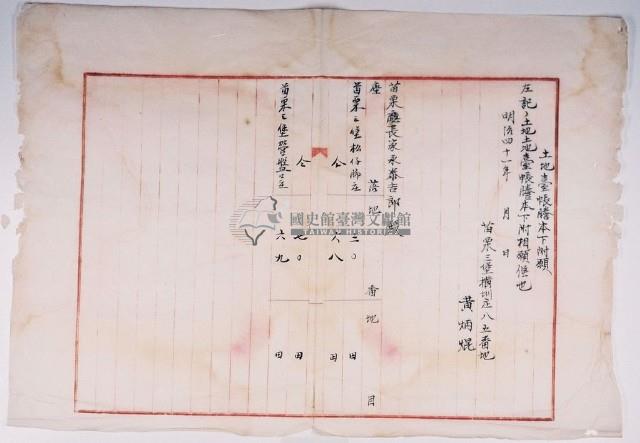 土地臺帳謄本下附願
左記ノ土地土地臺帳謄本下附相願候也
明治四十一年 月 日
苗栗三堡横圳庄八五番地
黃炳焜
苗栗廳長家永泰吉郎殿
座 落 地 番 地 目
苗栗三堡松仔脚庄 三〇 田
仝 六八 田
仝 七〇 田
苗栗三堡營盤 六九 田
國史館臺灣文獻館
TAIWAN HISTORICA